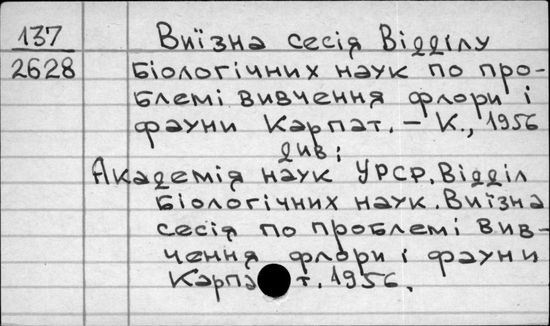 137 Виїзна сесія Відділу
2628 Біологічних наук по про-
блемі вивчення флори і
фауни Карпат. – К., 1956
див:
Академія наук УРСР. Відділ
Біологічних наук. Виїзна
сесія по проблемі вив-
чення флори і фауни
Карпат. 1956.